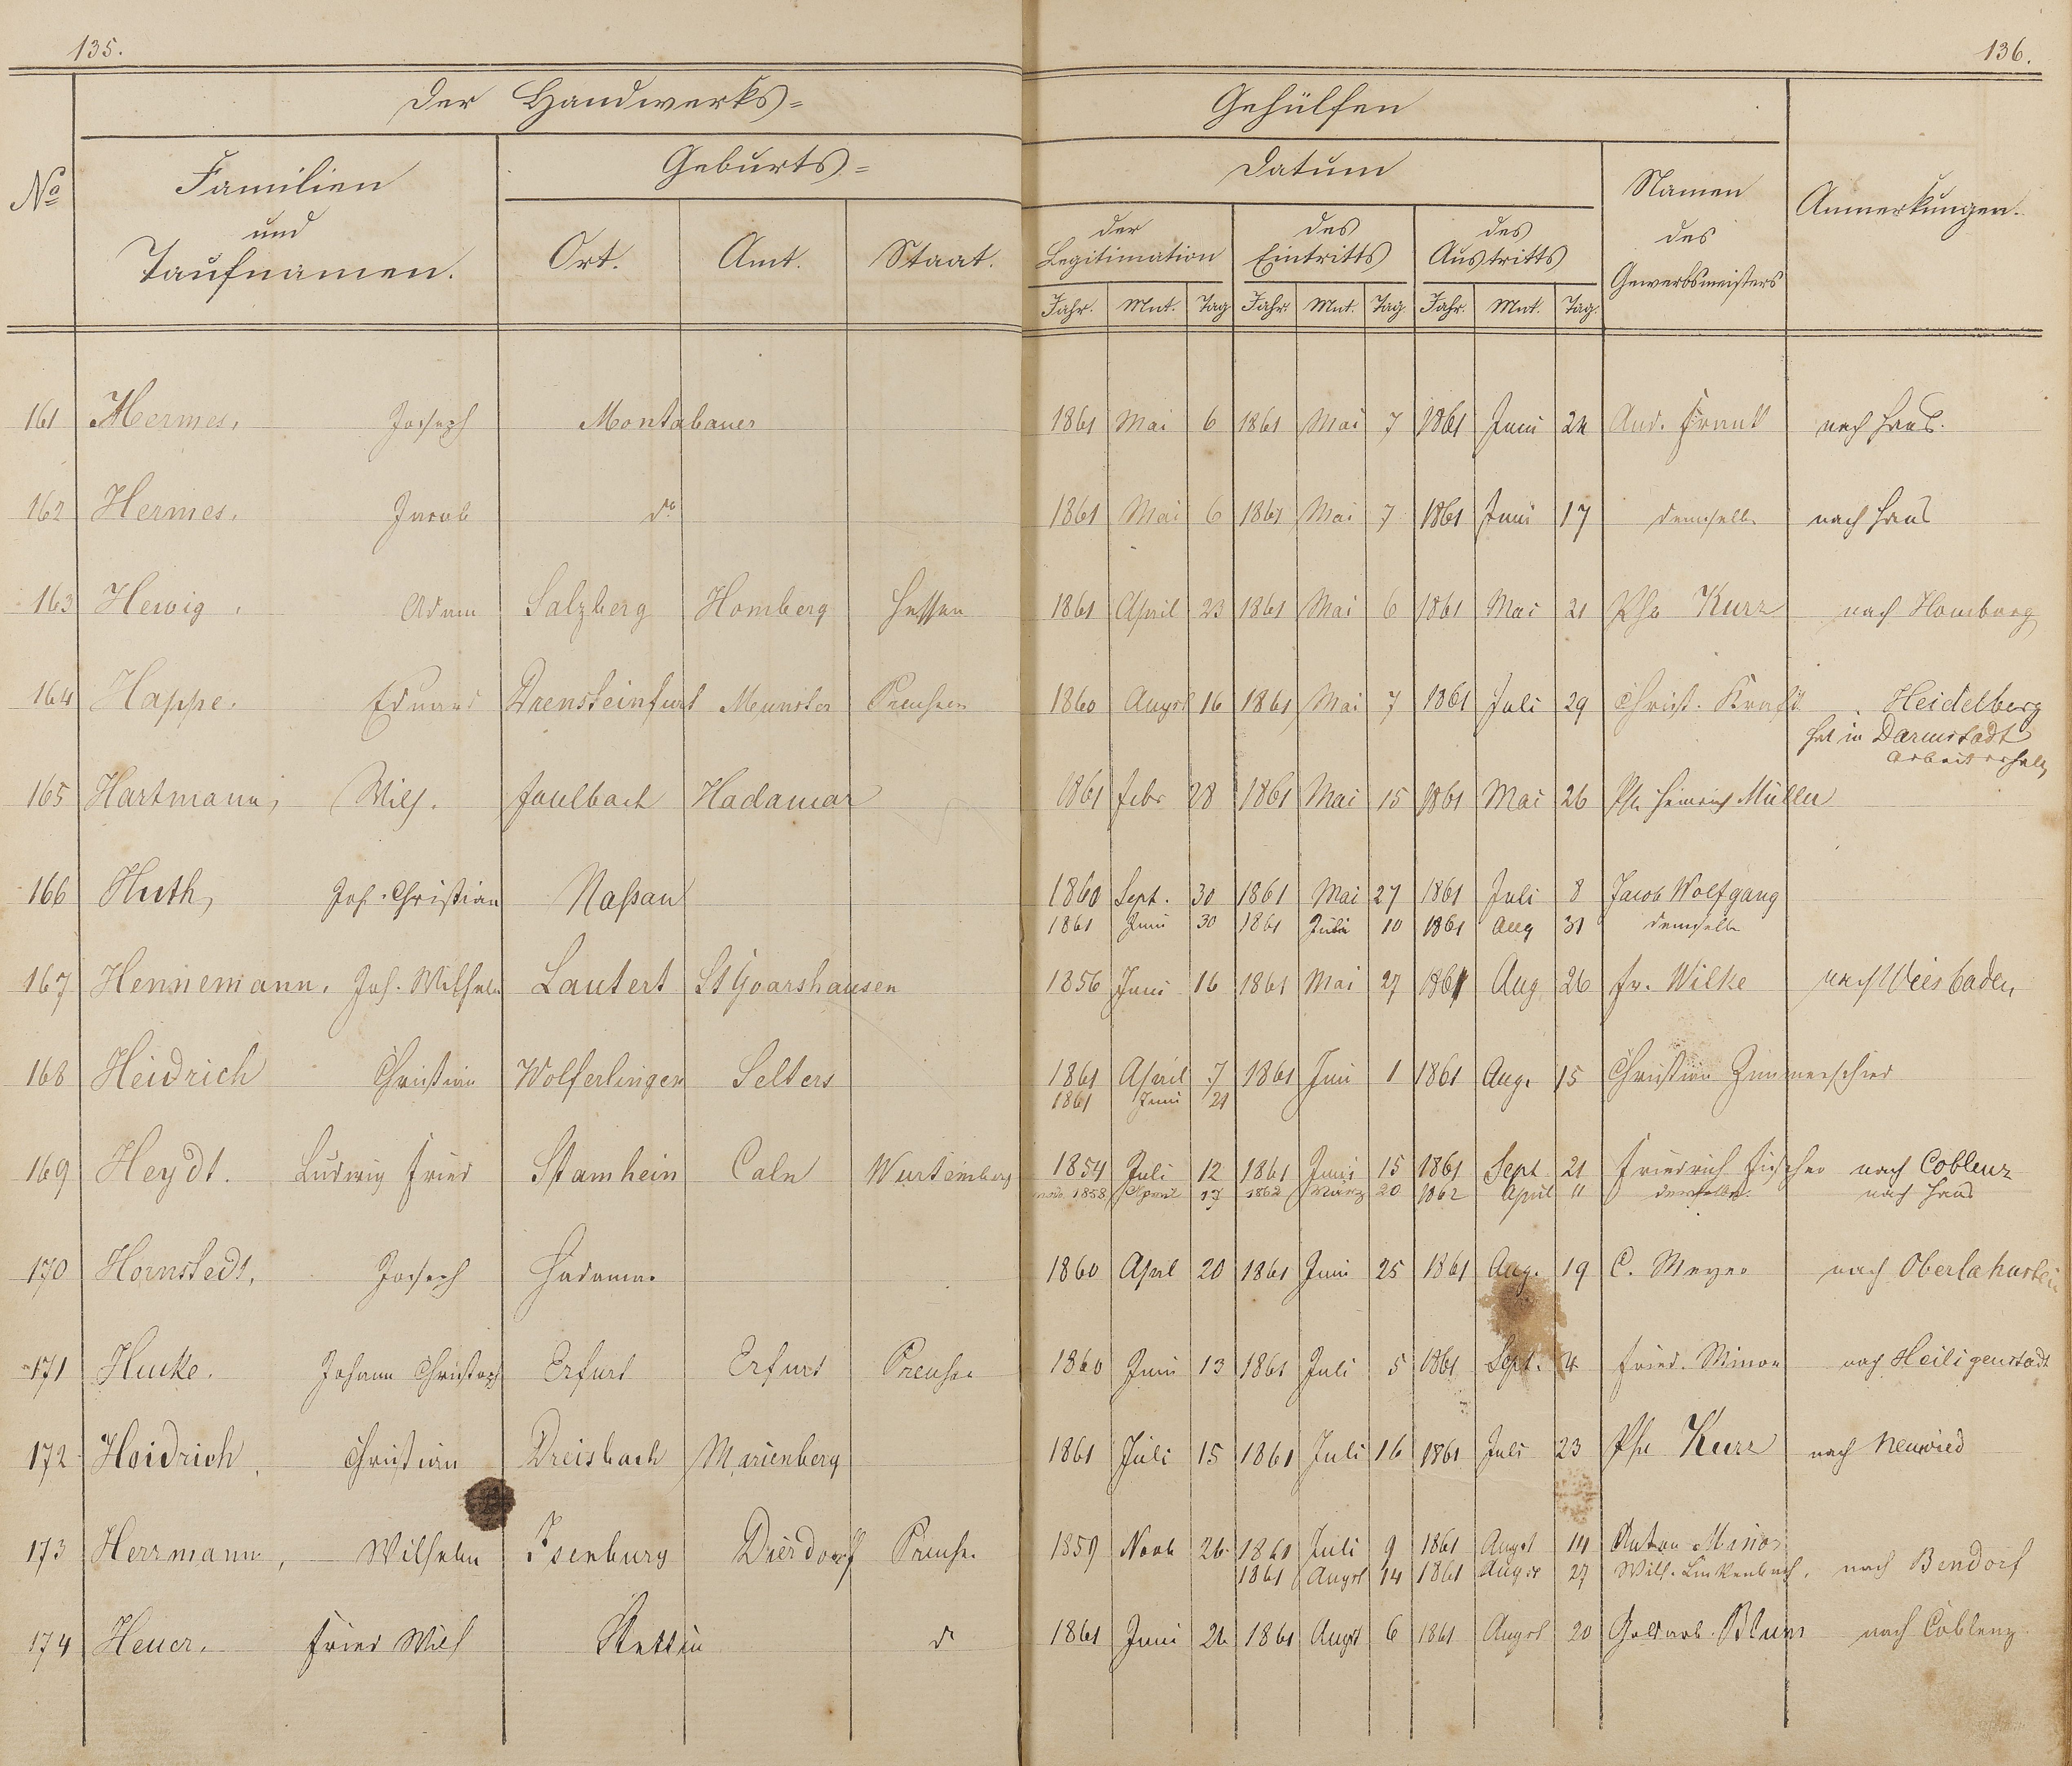 135.
136.
Der Handwerks=
Gehülfen
No
Familien
und
Taufnamen.
Geburts=
Ort. Amt. Staat.
Datum
der
Legitimation
des
Eintritts
des
Austritts
Jahr. Mnt. Tag Jahr. Mnt. Tag Jahr. Mnt. Tag.
Namen
des
Gewerbsmeisters
Anmerkungen.
161 Hermes, Joseph Montabauer 1861 Mai 6 1861 Mai 7 1861 Juni 24 And. Frank nach Haus.
162 Hermes, Jacob do 1861 Mai 6 1861 Mai 7 1861 Juni 17 demselb. nach Haus
163 Hewig, Adam Salzberg Homberg Hessen 1861 April 23 1861 Mai 6 1861 Mai 21 Phe Kurz nach Homburg
164 Happe. Eduard Drensteinfurt Munster Preusen 1860 Augst 16 1861 Mai 7 1861 Juli 29 Christ. Kraft Heidelberg
hat in Darmstadt
Arbeit erhalt
165 Hartmann, Wilh. Faulbach Hadamar 1861 Febr 28 1861 Mai 15 1861 Mai 26 Ph. Heinrich Müller
166 Huth, Joh. Christian Naßau 1860 Sept. 30 1861 Mai 27 1861 Juli 8 Jacob Wolfgang
1861 Juni 30 1861 Juli 10 1861 Aug 31 demselb
167 Hennemann, Joh. Wilhelm Lautert St Goarshausen 1856 Juni 16 1861 Mai 27 1861 Aug 26 Fr. Wilke nach Wiesbaden
168 Heidrich Christian Wolferlingen Selters 1861 April 7 1861 Juni 1 1861 Aug. 15 Christian Zimmerschied
1861 Juni 21
169 Heydt. Ludwig Fried Stamhein Caln Wurtemberg 1854 Juli 12 1861 Juni 15 1861 Sept 21 Friedrich Fischer nach Coblenz
1858 17 1862 März 20 1862 April 11 derselbe. nach Haus
170 Hornstedt, Joseph Hadamar 1860 April 20 1861 Juni 25 1861 Aug. 19 C. Meyer nach Oberlahnstein
171 Hucke. Johann Christoph Erfurt Erfurt Preusen 1860 Juni 13 1861 Juli 5 1861 Sept. 4 Fried. Minor nach Heiligenstadt
172 Heidrich, Christian Dreisbach Marienberg 1861 Juli 15 1861 Juli 16 1861 Juli 23 Phe Kurz nach Neuwied
173 Herrmann, Wilhelm Isenburg Dierdorf Preuse. 1859 Novb 26 1861 Juli 9 1861 Augst 14 Anton Minor
1861 Augst 14 1861 Augst 27 Wilh. Linkenbach, nach Bendorf
174 Heuer. Fried Wilh Stettin do 1861 Juni 26 1861 Augst 6 1861 Augst 20 Goldarb. Blum nach Coblenz